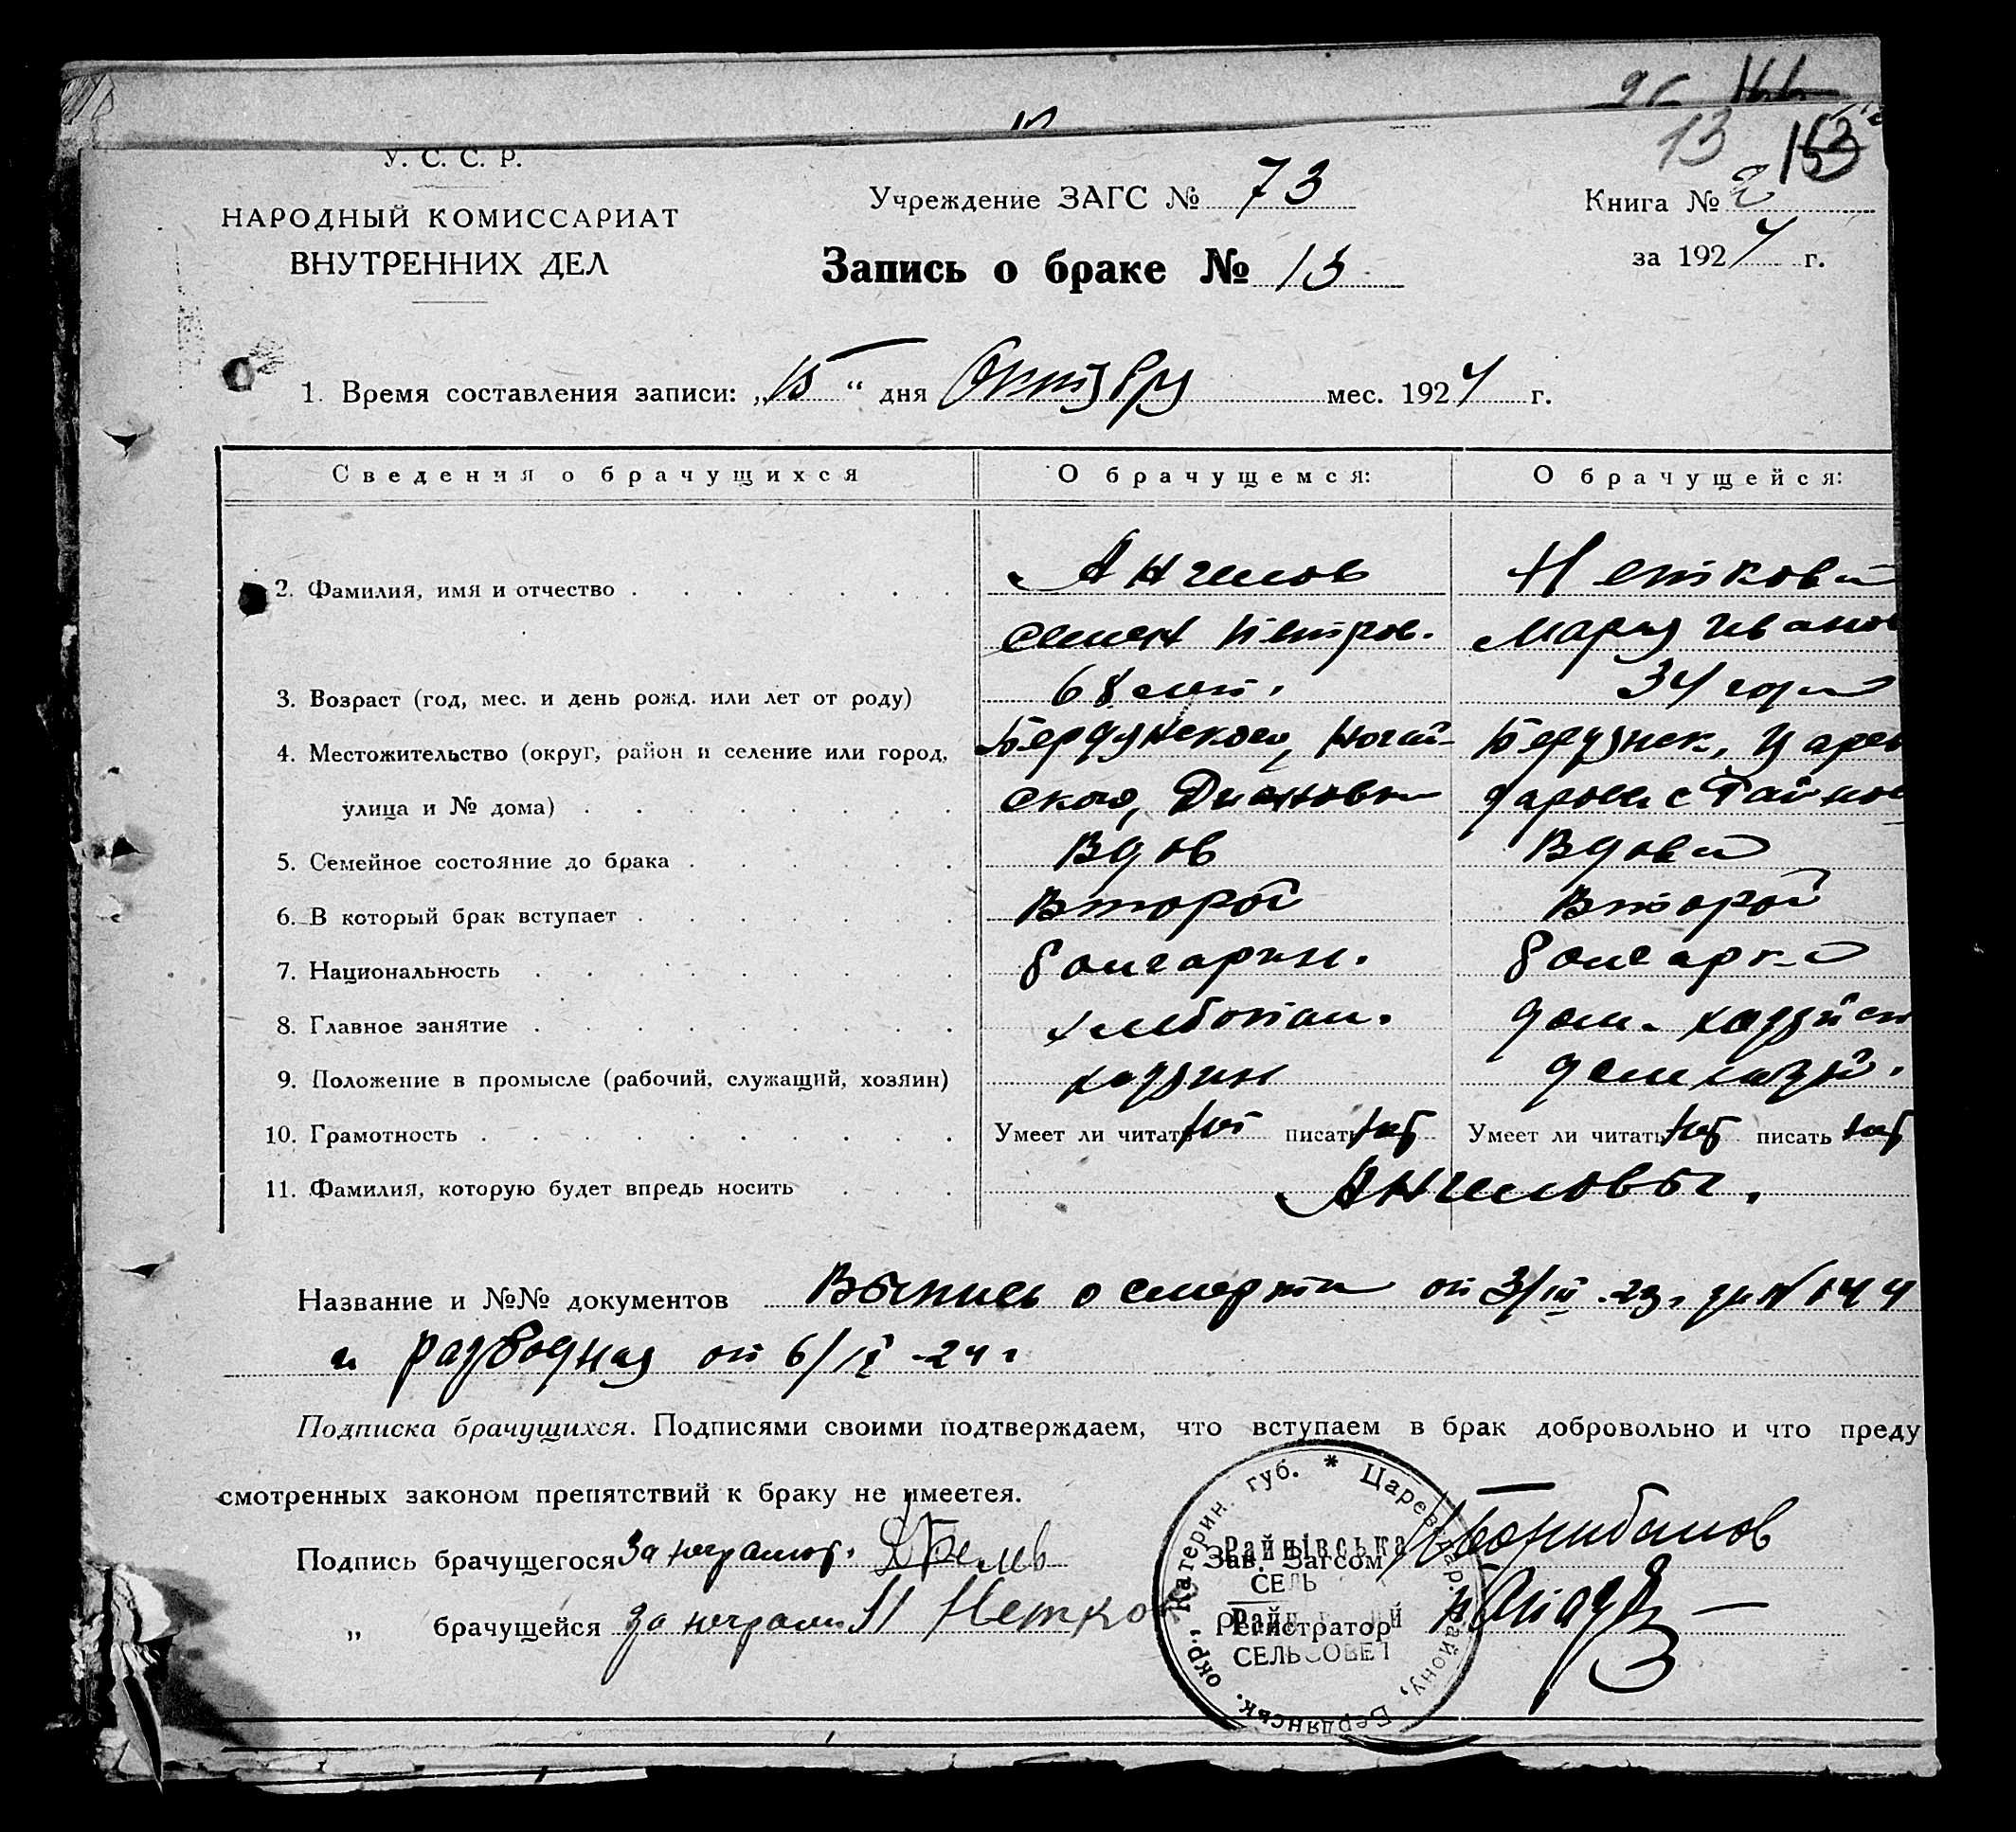 13 153
У. С. С. Р.
НАРОДНЫЙ КОМИССАРИАТ
ВНУТРЕННИХ ДЕЛ
Учреждение ЗАГС № 73
Книга № 2
за 1924 г.
Запись о браке № 13
1. Время составления записи: „15“ дня Октября мес. 1924 г.
Сведения о брачущихся О брачущемся: О брачущейся:
2. Фамилия, имя и отчество Ангелов Неткова
Семен Петров. Мария Иванов
3. Возраст (год, мес. и день рожд. или лет от роду) 68 лет. 34 года
4. Местожительство (округ, район и селение или город, Бердянского, Ногай- Бердянск, Царев
улица и № дома) ского, Диановка даровск с Райнов
5. Семейное состояние до брака Вдов Вдова
6. В который брак вступает Второй Второй
7. Национальность болгарин. болгарка
8. Главное занятие хлебопаш. дом. хозяйст
9. Положение в промысле (рабочий, служащий, хозяин) хозяин дом хозяй.
10. Грамотность Умеет ли читать нет писать нет Умеет ли читать нет писать нет
11. Фамилия, которую будет впредь носить Ангеловы.
Название и №№ документов Выпись о смерти от 3/III-23г за № 144
и разводная от 6/IX-24г
Подписка брачущихся. Подписями своими подтверждаем, что вступаем в брак добровольно и что преду
смотренных законом препятствий к браку не имеетея.
Подпись брачущегося За неграмот. Зав. Загсом
„ брачущейся за неграм Н Нетков Регистратор
Катерин. губ. * Царев дар. району, Бердянськ. окр.,
Райнівська
СЕЛЬ
СЕЛЬСОВЕТ